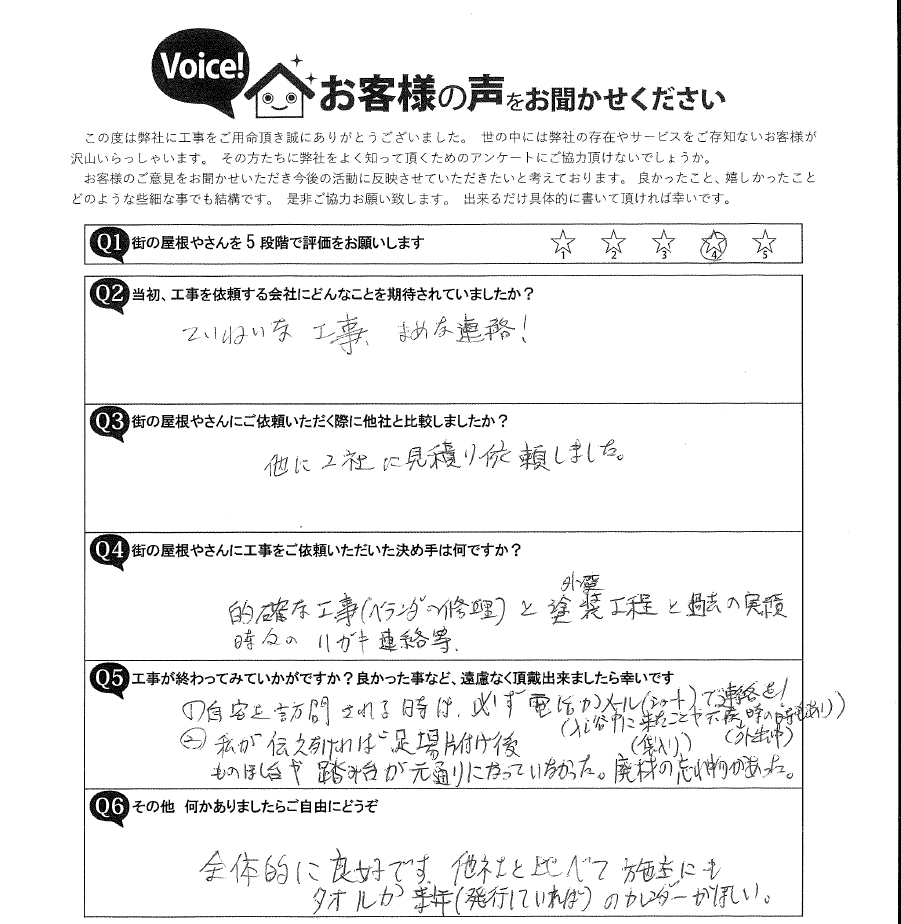 Voice!
お客様の声をお聞かせください
この度は弊社に工事をご用命頂き誠にありがとうございました。 世の中には弊社の存在やサービスをご存知ないお客様が
沢山いらっしゃいます。 その方たちに弊社をよく知って頂くためのアンケートにご協力頂けないでしょうか。
お客様のご意見をお聞かせいただき今後の活動に反映させていただきたいと考えております。 良かったこと、嬉しかったこと
どのような些細な事でも結構です。 是非ご協力お願い致します。 出来るだけ具体的に書いて頂ければ幸いです。
Q1 街の屋根やさんを5段階で評価をお願いします
1 2 3 4 5
Q2 当初、工事を依頼する会社にどんなことを期待されていましたか?
ていねいな工事、まめな連絡!
Q3 街の屋根やさんにご依頼いただく際に他社と比較しましたか?
他に2社に見積り依頼しました。
Q4 街の屋根やさんに工事をご依頼いただいた決め手は何ですか?
外壁
的確な工事(ベランダの修理)と塗装工程と過去の実績
時々のハガキ連絡等.
Q5 工事が終わってみていかがですか?良かった事など、遠慮なく頂戴出来ましたら幸いです
①自宅を訪問される時は、必ず電話かメール(ショート)で連絡を!
(入浴中に来たことや不在時の時もあり)
(外出中)
②私が伝えなければ足場片付け後
(袋入り)
ものほし台や踏み台が元通りになっていなかった。廃材の忘れ物があった。
Q6 その他 何かありましたらご自由にどうぞ
全体的に良好です。他社と比べて施主にも
タオルか来年(発行していれば)のカレンダーがほしい。